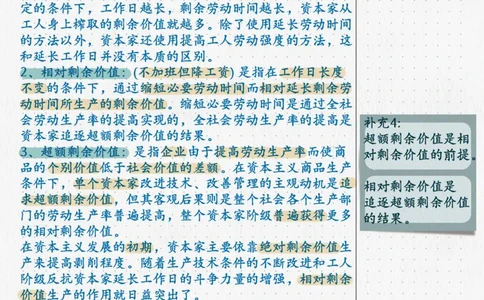 定的条件下，工作日越长，剩余劳动时间越长，资本家从
工人身上榨取的剩余价值就越多。除了使用延长劳动时间
的方法以外，资本家还使用提高工人劳动强度的方法，这
和延长工作日并没有本质的区别。
2、相对剩余价值：(不加班但降工资) 是指在工作日长度
不变的条件下，通过缩短必要劳动时间而相对延长剩余劳
动时间所生产的剩余价值。缩短必要劳动时间是通过全社
会劳动生产率的提高实现的，全社会劳动生产率的提高是
资本家追逐超额剩余价值的结果。
3、超额剩余价值：是指企业由于提高劳动生产率而使商
品的个别价值低于社会价值的差额。在资本主义商品生产
条件下，单个资本家改进技术、改善管理的主观动机是追
求超额剩余价值，但其客观后果则是整个社会各个生产部
门的劳动生产率普遍提高，整个资本家阶级普遍获得更多
的相对剩余价值。
在资本主义发展的初期，资本家主要依靠绝对剩余价值生
产来提高剥削程度。随着生产技术条件的不断改进和工人
阶级反抗资本家延长工作日的斗争力量的增强，相对剩余
价值生产的作用就日益突出了。
补充4:
超额剩余价值是相
对剩余价值的前提。
相对剩余价值是
追逐超额剩余价值
的结果。